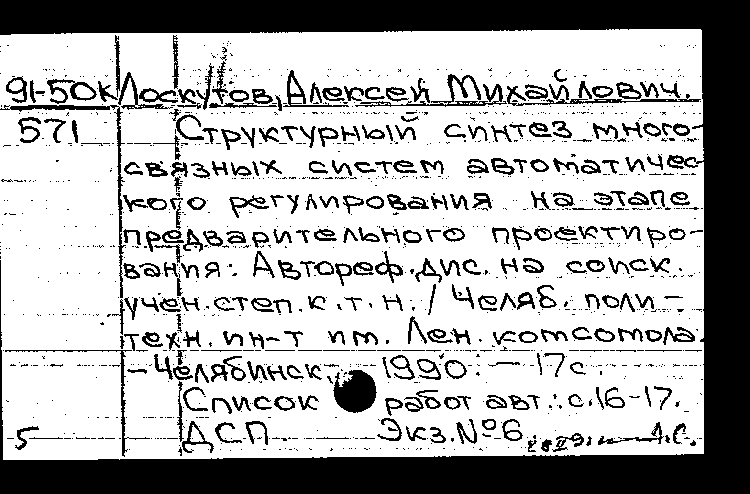 91-50к Лоскутов, Алексей Михайлович.
571 Структурный синтез много-
связных систем автоматичес-
кого регулирования на этапе
предварительного проектиро-
вания: Автореф. дис. на соиск.
учен. степ. к. т. н. / Челяб. поли-
техн. ин-т им. Лен. комсомола.
- Челябинск, 1990. - 17 с.
Список работ авт.: с. 16-17.
5 ДСП Экз. №6 А.С.